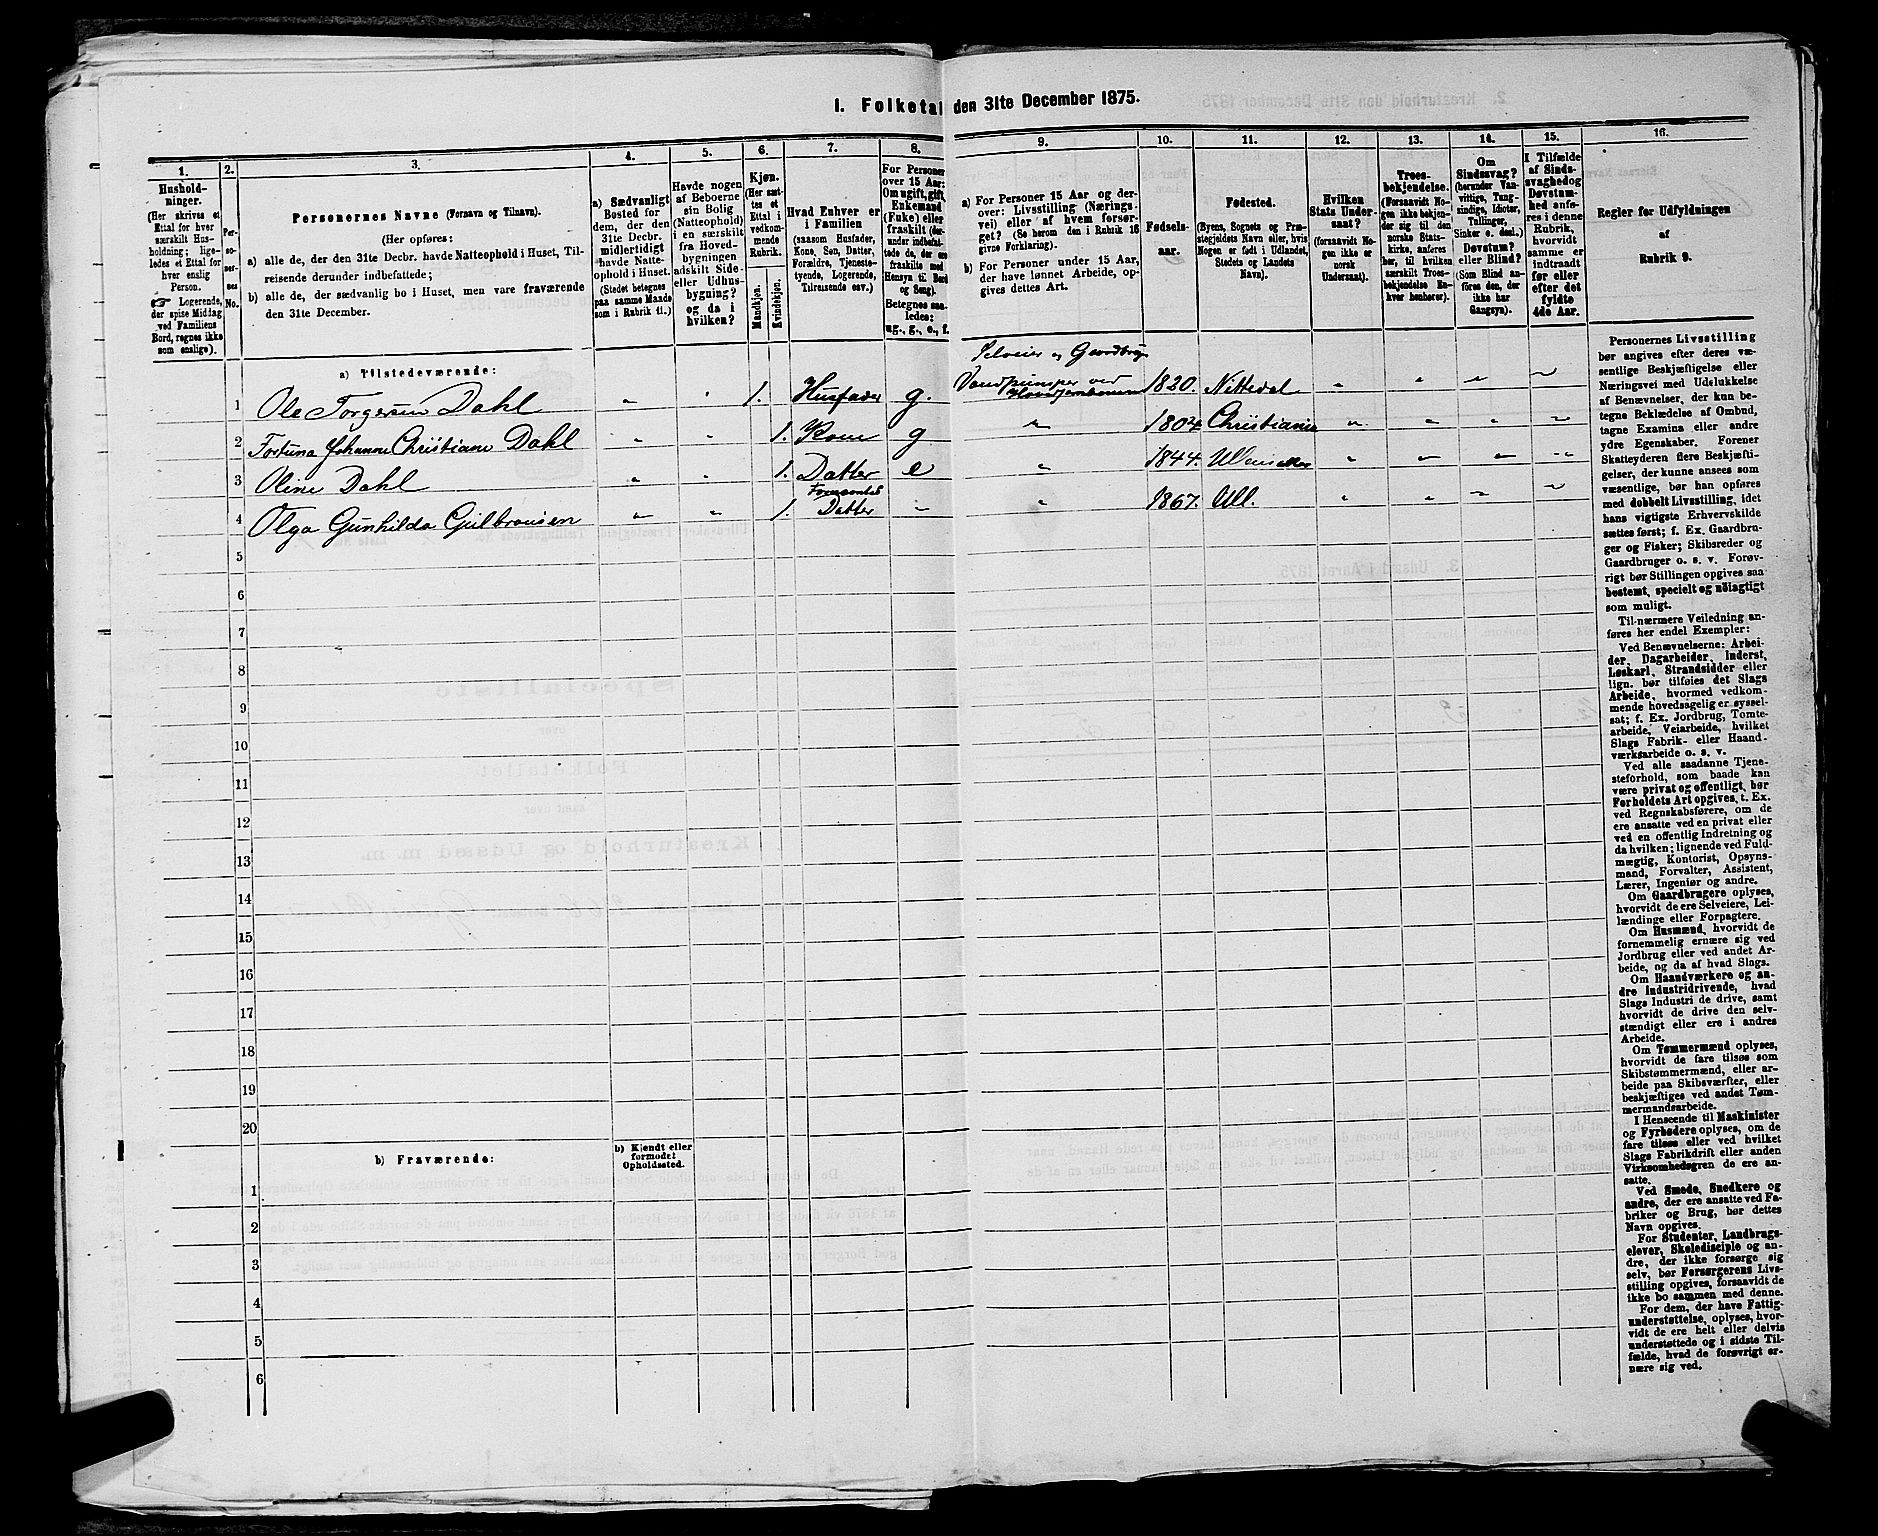 I. Folketal den 31te December 1875.
1. 2. 3. 4. 5. 6. 7. 8. 9. 10. 11. 12. 13. 14. 15. 16.
Hushold-
ninger.
(Her skrives et
Ettal for hver
særskilt Hus-
holdning; lige-
ledes et Ettal for
hver enslig
Person.
☞ Logerende,
der spise Middag
ved Familiens
Bord, regnes ikke
som enslige).
Per-
so-
ner-
nes
No.
Personernes Navne (Fornavn og Tilnavn).
(Her opføres:
a) alle de, der den 31te Decbr. havde Natteophold i Huset, Til-
reisende derunder indbefattede;
b) alle de, der sædvanlig bo i Huset, men vare fraværende
den 31te December.
a) Sædvanligt
Bosted for
dem, der den
31te Decbr.
midlertidigt
havde Natte-
ophold i Huset.
(Stedet betegnes
paa samme Maade
som i Rubrik 11.)
Havde nogen
af Beboerne
sin Bolig
(Natteophold)
i en særskilt
fra Hoved-
bygningen
adskilt Side-
eller Udhus-
bygning?
og da i
hvilken?
Kjøn.
(Her sæt-
tes et
Ettal i
vedkom-
mende
Rubrik.
Mandkjøn.
Kvindekjøn.
Hvad Enhver er
i Familien
(saasom Husfader,
Kone, Søn, Datter,
Forældre, Tjeneste-
tyende, Logerende,
Tilreisende osv.)
For Personer
over 15 Aar:
Om ugift, gift,
Enkemand
(Enke) eller
fraskilt (der-
under indbefat-
tede de, der ere
fraskilte med
Hensyn til Bord
og Seng).
Betegnes saa-
ledes:
ug., g., e., f.
a) For Personer 15 Aar og der-
over: Livsstilling (Nærings-
vei) eller af hvem forsør-
get? (Se herom den i Rubrik 16
givne Forklaring).
b) For Personer under 15 Aar,
der have lønnet Arbeide, op-
gives dettes Art.
Fødsels-
aar.
Fødested.
(Byens, Sognets og Præ-
stegjeldets Navn eller, hvis
Nogen er født i Udlandet,
Stedets og Landets
Navn).
Hvilken
Stats Under-
saat?
(forsaavidt No-
gen ikke er
norsk
Undersaat).
Troes-
bekjendelse.
(Forsaavidt No-
gen ikke bekjen-
der sig til den
norske Stats-
kirke, anføres
her, til hvilken
særskilt Troes-
bekjendelse En-
hver henhører).
Om
Sindssvag?
(herunder Van-
vittige, Tung-
sindige, Idioter,
Tullinger,
Sinker o. desl.)
Døvstum?
eller Blind?
(Som Blind an-
føres den, der
ikke har
Gangsyn).
I Tilfælde
af Sinds-
svaghed og
Døvstum-
hed anfø-
res i denne
Rubrik,
hvorvidt
samme er
indtraadt
før eller
efter det
fyldte
4de Aar.
Regler for Udfyldningen
af
Rubrik 9.
a) Tilstedeværende:
Selveier og Gaardbrug
1 Ole Torgersen Dahl " " 1. Husfader g. Vandpumper ved 1820. Nittedal
2 Fortuna Johanne Christiane Dahl " " 1. Kone g " 1804. Christiania
3 Oline Dahl " " 1. Datter e " 1844. Ullensaker
4 Olga Gunhilda Gulbransen " " 1. Datter " " 1867. Ull.
5
6
7
8
9
10
11
12
13
14
15
16
17
18
19
20
b) Fraværende:
b) Kjendt eller
formodet
Opholdssted.
1
2
3
4
5
6
Personernes Livsstilling
bør angives efter deres væ-
sentlige Beskjæftigelse eller
Næringsvei med Udelukkelse
af Benævnelser, der kun be-
tegne Beklædelse af Ombud,
tagne Examina eller andre
ydre Egenskaber. Forener
Skatteyderen flere Beskjæfti-
gelser, der kunne ansees som
væsentlige, bør han opføres
med dobbelt Livsstilling, idet
hans vigtigste Erhvervskilde
sættes først; f. Ex. Gaardbru-
ger og Fisker; Skibsreder og
Gaardbruger o. s. v. Forøv-
rigt bør Stillingen opgives saa
bestemt, specielt og nøiagtigt
som muligt.
Til nærmere Veiledning an-
føres her endel Exempler:
Ved Benævnelserne: Arbei-
der, Dagarbeider, Inderst,
Løskarl, Strandsidder eller
lign. bør tilføies det Slags
Arbeide, hvormed vedkom-
mende hovedsagelig er syssel-
sat; f. Ex. Jordbrug, Tomte-
arbeide, Veiarbeide, hvilket
Slags Fabrik- eller Haand-
værksarbeide o. s. v.
Ved alle saadanne Tjene-
steforhold, som baade kan
være privat og offentligt, bør
Forholdets Art opgives, t. Ex.
ved Regnskabsførere, om de
ere ansatte ved en privat eller
ved en offentlig Indretning og
da hvilken; lignende ved Fuld-
mægtig, Kontorist, Opsyns-
mand, Forvalter, Assistent,
Lærer, Ingeniør og andre.
Om Gaardbrugere oplyses,
hvorvidt de ere Selveiere, Lei-
lændinge eller Forpagtere.
Om Husmænd, hvorvidt de
fornemmelig ernære sig ved
Jordbrug eller ved andet Ar-
beide, og da af hvad Slags.
Om Haandværkere og an-
dre Industridrivende, hvad
Slags Industri de drive, samt
hvorvidt de drive den selv-
stændigt eller ere i andres
Arbeide.
Om Tømmermænd oplyses,
hvorvidt de fare tilsøs som
Skibstømmermænd, eller ar-
beide paa Skibsværfter, eller
beskjæftiges ved andet Tøm-
mermandsarbeide.
I Henseende til Maskinister
og Fyrbødere oplyses, om de
fare tilsøs eller ved hvilket
Slags Fabrikdrift eller anden
Virksomhedsgren de ere an-
satte.
Ved Smede, Snedkere og
andre, der ere ansatte ved Fa-
briker og Brug, bør dettes
Navn opgives.
For Studenter, Landbrugs-
elever, Skoledisciple og an-
dre, der ikke forsørge sig
selv, bør Forsørgerens Livs-
stilling opgives, forsaavidt de
ikke bo sammen med denne.
For dem, der have Fattig-
understøttelse, oplyses, hvor-
vidt de ere helt eller delvis
understøttede og i sidste Til-
fælde, hvad de forøvrigt er-
nære sig ved.